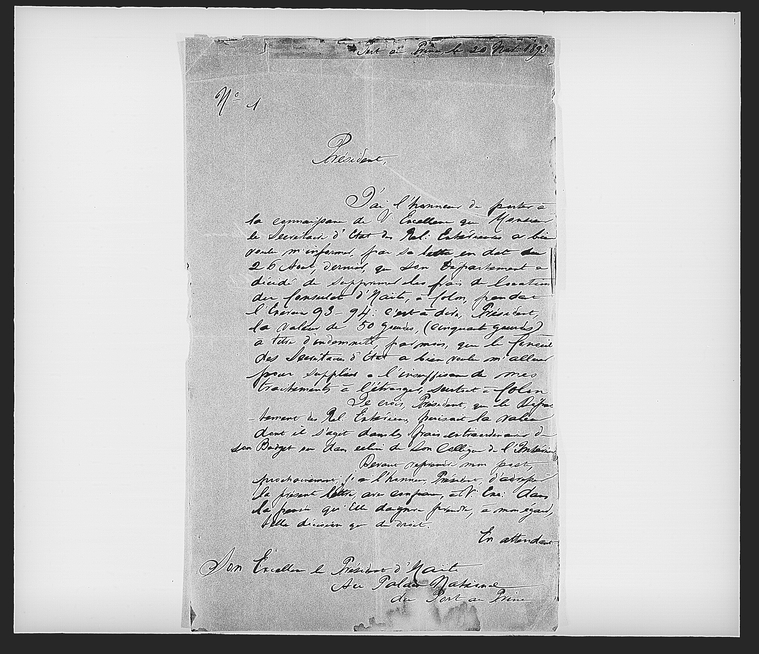 Port au Prince le 20 1893
No 1
Président,
J'ai l'honneur de porter à
la connaissance de V. Excellence que Monsieur
le Secrétaire d'Etat des Rel. Extérieures a bien
voulu m'informer, par sa lettre en date du
26 dernier, que son Département a
décidé de supprimer les frais de location
du Consulat d'Haïti, à Colon, pendant
l'Exercice 93-94. c'est à dire, Président,
la valeur de 50 Gourdes, (cinquante gourdes)
à titre d'indemnité, par mois, que le Conseil
des Secrétaires d'Etat a bien voulu m'allouer
pour suppléer à l'insuffisance de mes
traitements à l'étranger, surtout à Colon
Je crois, Président, que le Dépar
tement des Rel. Extérieures, puisait la valeur
dont il s'agit dans les frais extraordinaires de
son Budget ou dans celui de son Collègue de l'Intérieur
Devant reprendre mon poste
prochainement, j'ai l'honneur, Président,
la présente lettre, avec confiance, à V. Exc. dans
la pensée qu'Elle daignera prendre, à mon égard,
telle décision que de droit.
En attendant
Son Excellence le Président d'Haïti
Au Palais National
du Port au Prince